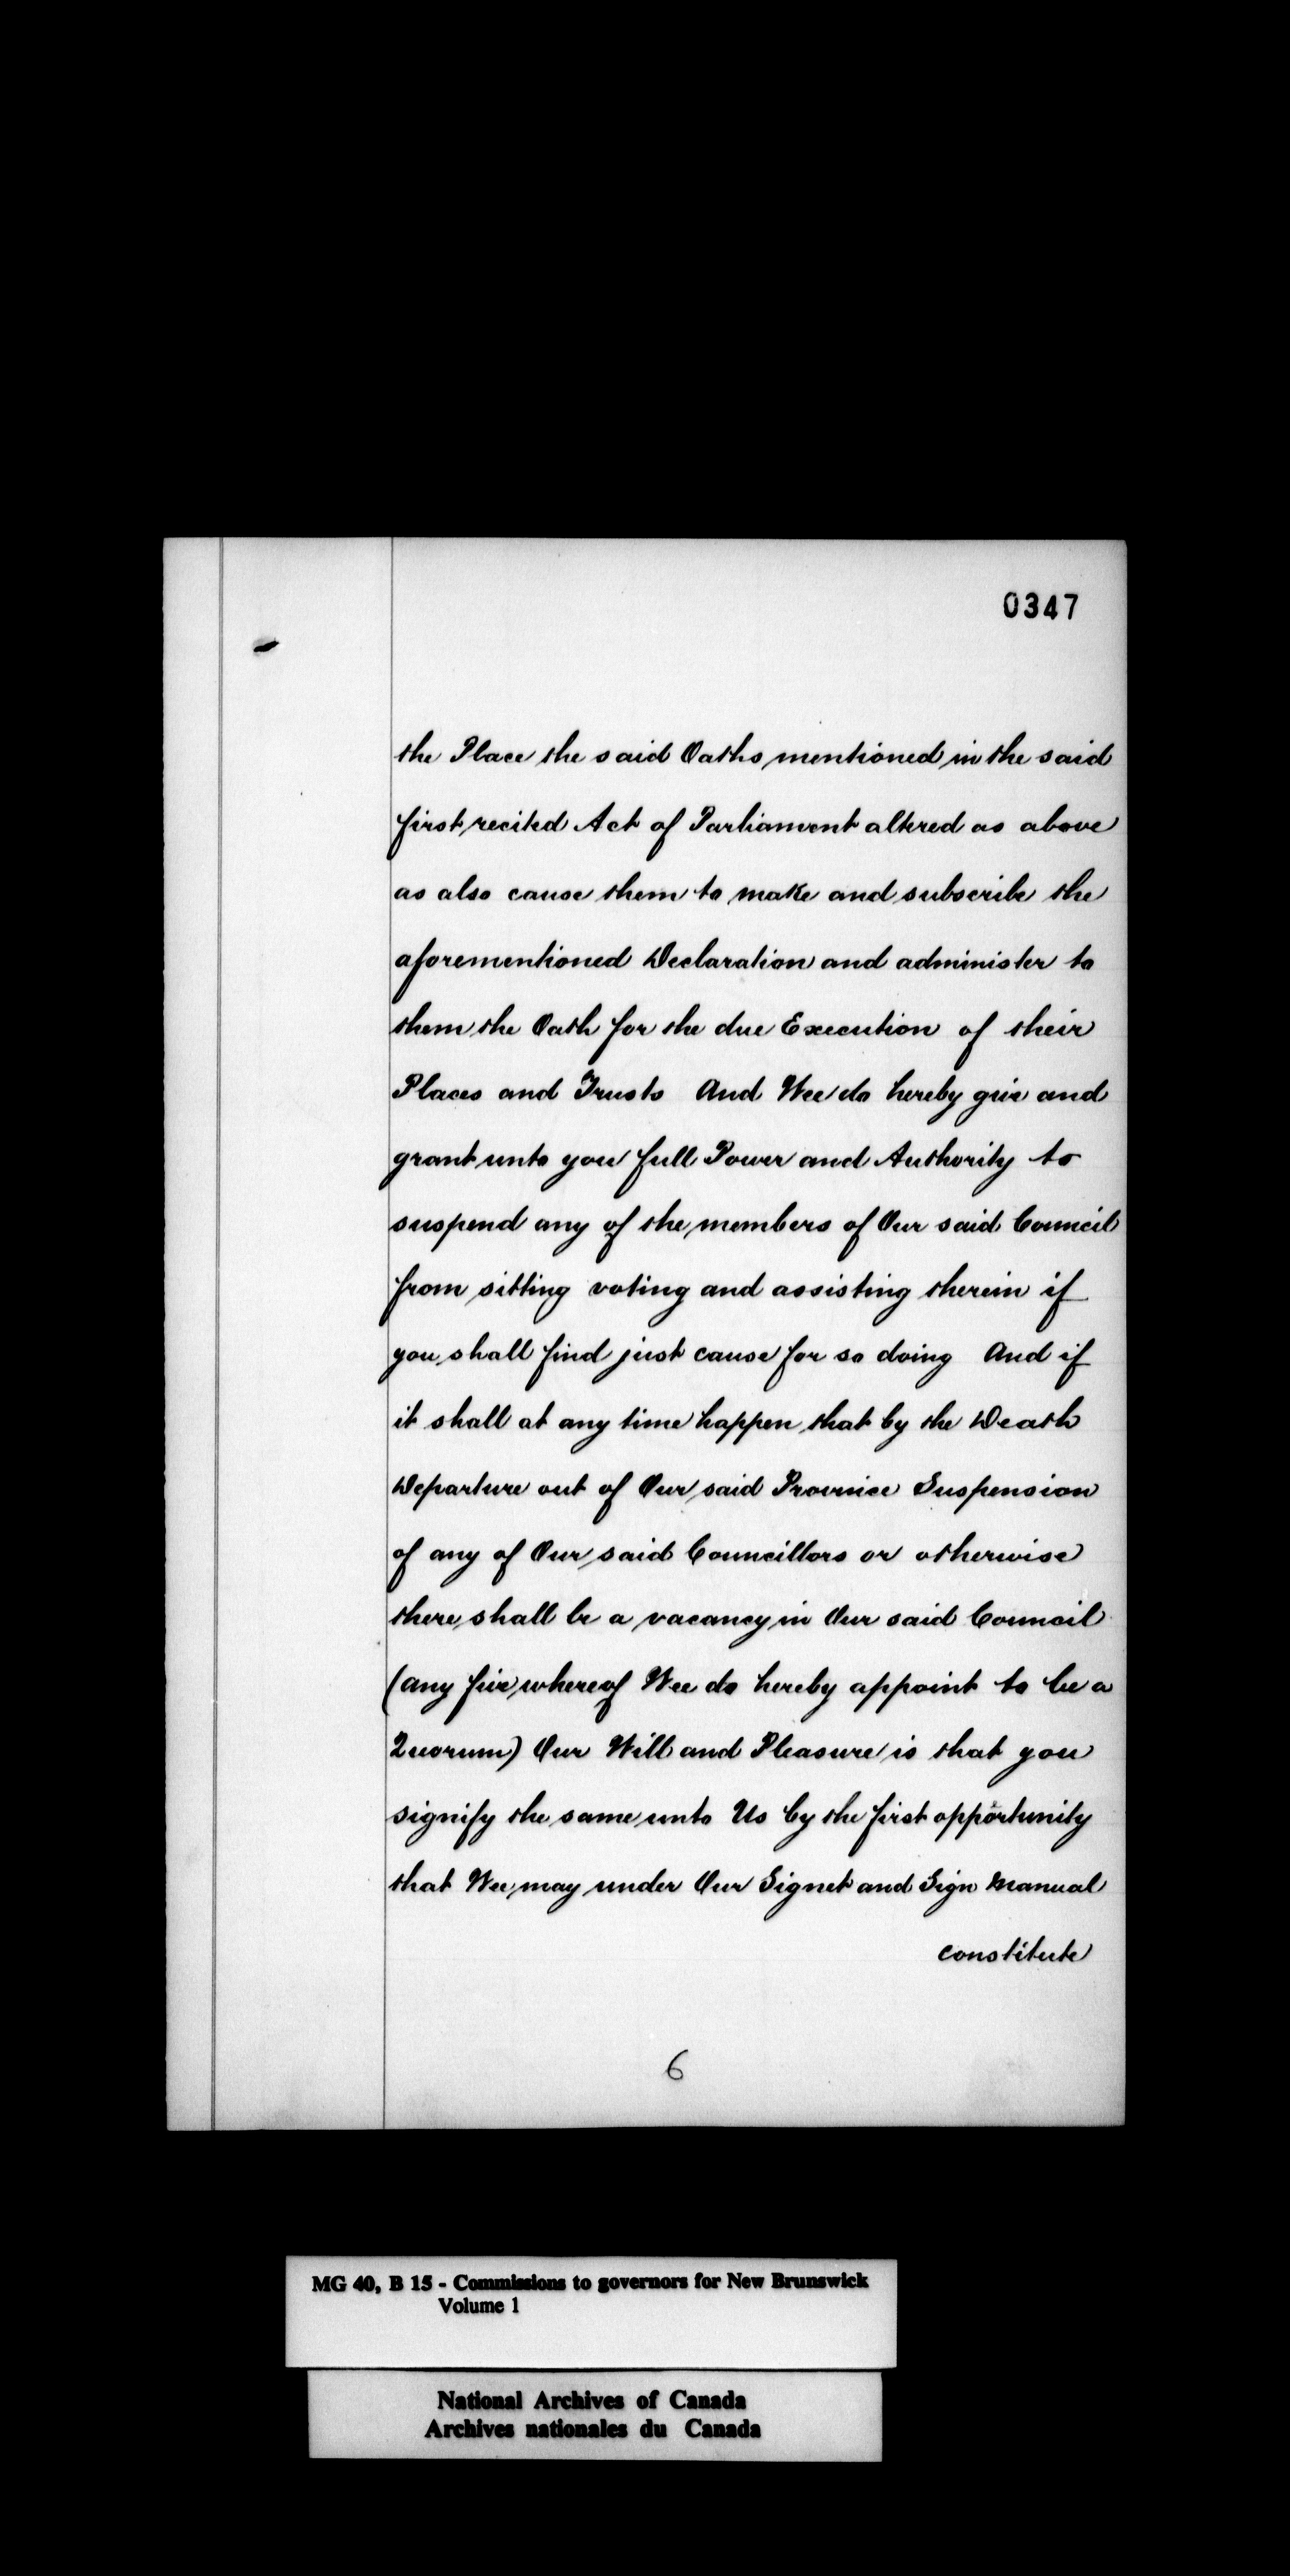 0347
the Place the said Oaths mentioned in the said
first recited Act of Parliament altered as above
as also cause them to make and subscribe the
aforementioned Declaration and administer to
them the Oath for the due Execution of their
Places and Trusts And Wee do hereby give and
grant unto you full Power and Authority to
suspend any of the members of Our said Council
from sitting voting and assisting therein if
you shall find just cause for so doing And if
it shall at any time happen that by the Death
Departure out of Our said Province Suspension
of any of Our said Councillors or otherwise
there shall be a vacancy in Our said Council
(any five whereof Wee do hereby appoint to be a
Quorum) Our Will and Pleasure is that you
signify the same unto Us by the first opportunity
that Wee may under Our Signet and Sign Manual
constitute
6
MG 40, B 15 - Commissions to governors for New Brunswick
Volume 1
National Archives of Canada
Archives nationales du Canada